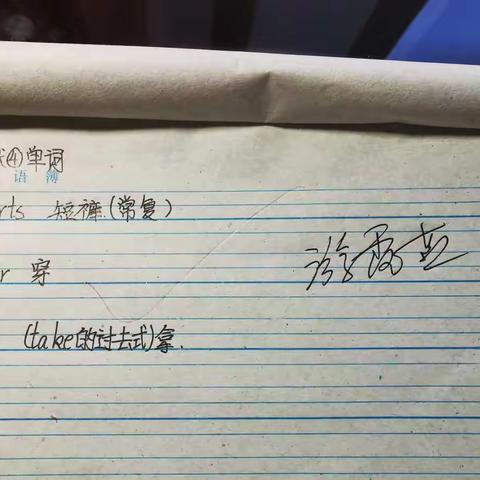 ④单词
语 簿
rts 短裤(常复)
r 穿
(take的过去式)拿.